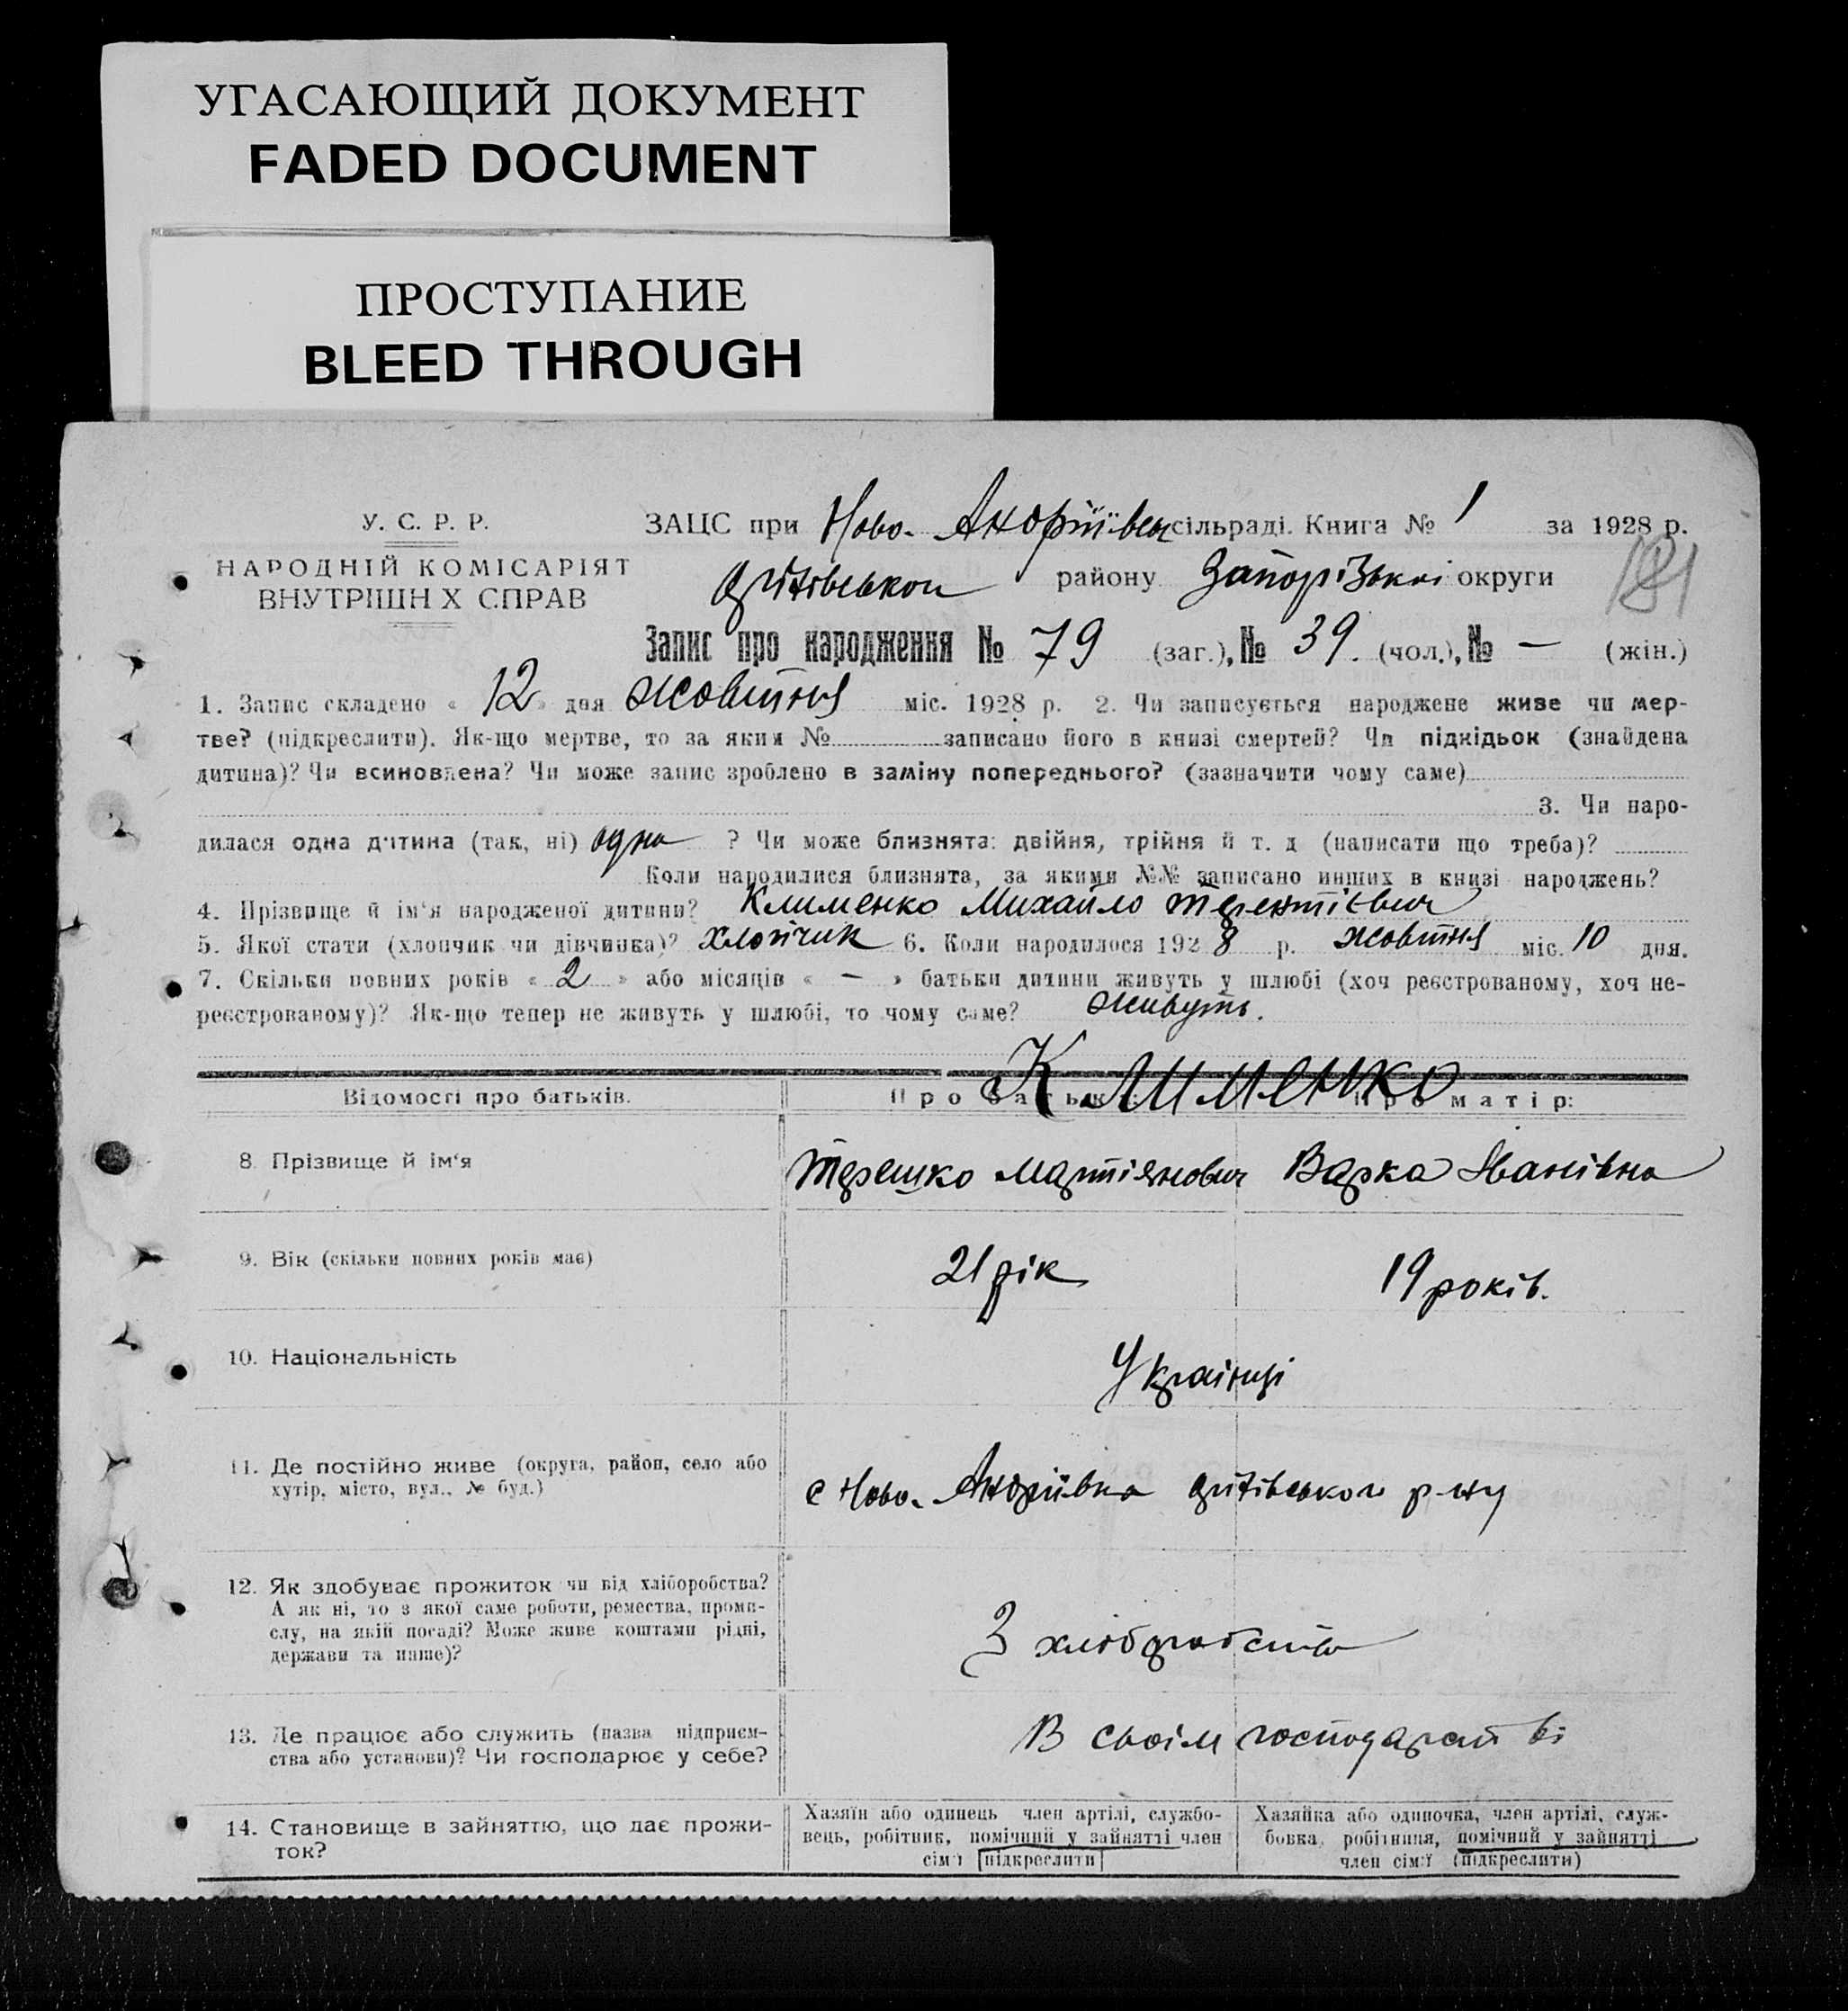 УГАСАЮЩИЙ ДОКУМЕНТ
FADED DOCUMENT
ПРОСТУПАНИЕ
BLEED THROUGH
У. С. Р. Р.
НАРОДНІЙ КОМІСАРІЯТ
ВНУТРІШН Х СПРАВ
ЗАЦС при Ново-Андріївськ сільраді. Книга № 1 за 1928 р.
району Запорізької округи
181
Запис про народження № 79 (заг.), № 39. (чол.), № — (жін.)
1. Запис складено « 12 » дня жовтня міс. 1928 р. 2. Чи записується народжене живе чи мер-
тве? (підкреслити). Як-що мертве, то за яким № записано його в книзі смертей? Чи підкідьок (знайдена
дитина)? Чи всиновлена? Чи може запис зроблено в заміну попереднього? (зазначити чому саме)
3. Чи наро-
дилася одна дитина (так, ні) одна ? Чи може близнята: двійня, трійня й т. д (написати що треба)?
Коли народилися близнята, за якими №№ записано инших в книзі народжень?
4. Прізвище й ім'я народженої дитини? Клименко Михайло Терентієвич
5. Якої стати (хлопчик чи дівчинка)? хлопчик 6. Коли народилося 1928 р. жовтня міс. 10 дня.
7. Скільки повних років « 2 » або місяців « — » батьки дитини живуть у шлюбі (хоч реєстрованому, хоч не-
реєстрованому)? Як-що тепер не живуть у шлюбі, то чому саме? живуть.
Клименко
Відомості про батьків. Про батька: Про матір:
8. Прізвище й ім'я Терешко Мартіянович Варка Іванівна
9. Вік (скільки повних років має) 21 рік 19 років.
10. Національність Українці
11. Де постійно живе (округа, район, село або
хутір, місто, вул., № буд.)
с Ново-Андріївка р-ну
12. Як здобуває прожиток чи від хліборобства?
А як ні, то з якої саме роботи, ремества, проми-
слу, на якій посаді? Може живе коштами рідні,
держави та инше)?
З хліборобства
13. Де працює або служить (назва підприєм-
ства або установи)? Чи господарює у себе?
В своїм господарстві
14. Становище в зайняттю, що дає прожи-
ток?
Хазяїн або одинець член артілі, службо-
вець, робітник, помічний у зайнятті член
сім'ї (підкреслити)
Хазяйка або одиночка, член артілі, служ-
бовка, робітниця, помічний у зайнятті
член сім'ї (підкреслити)